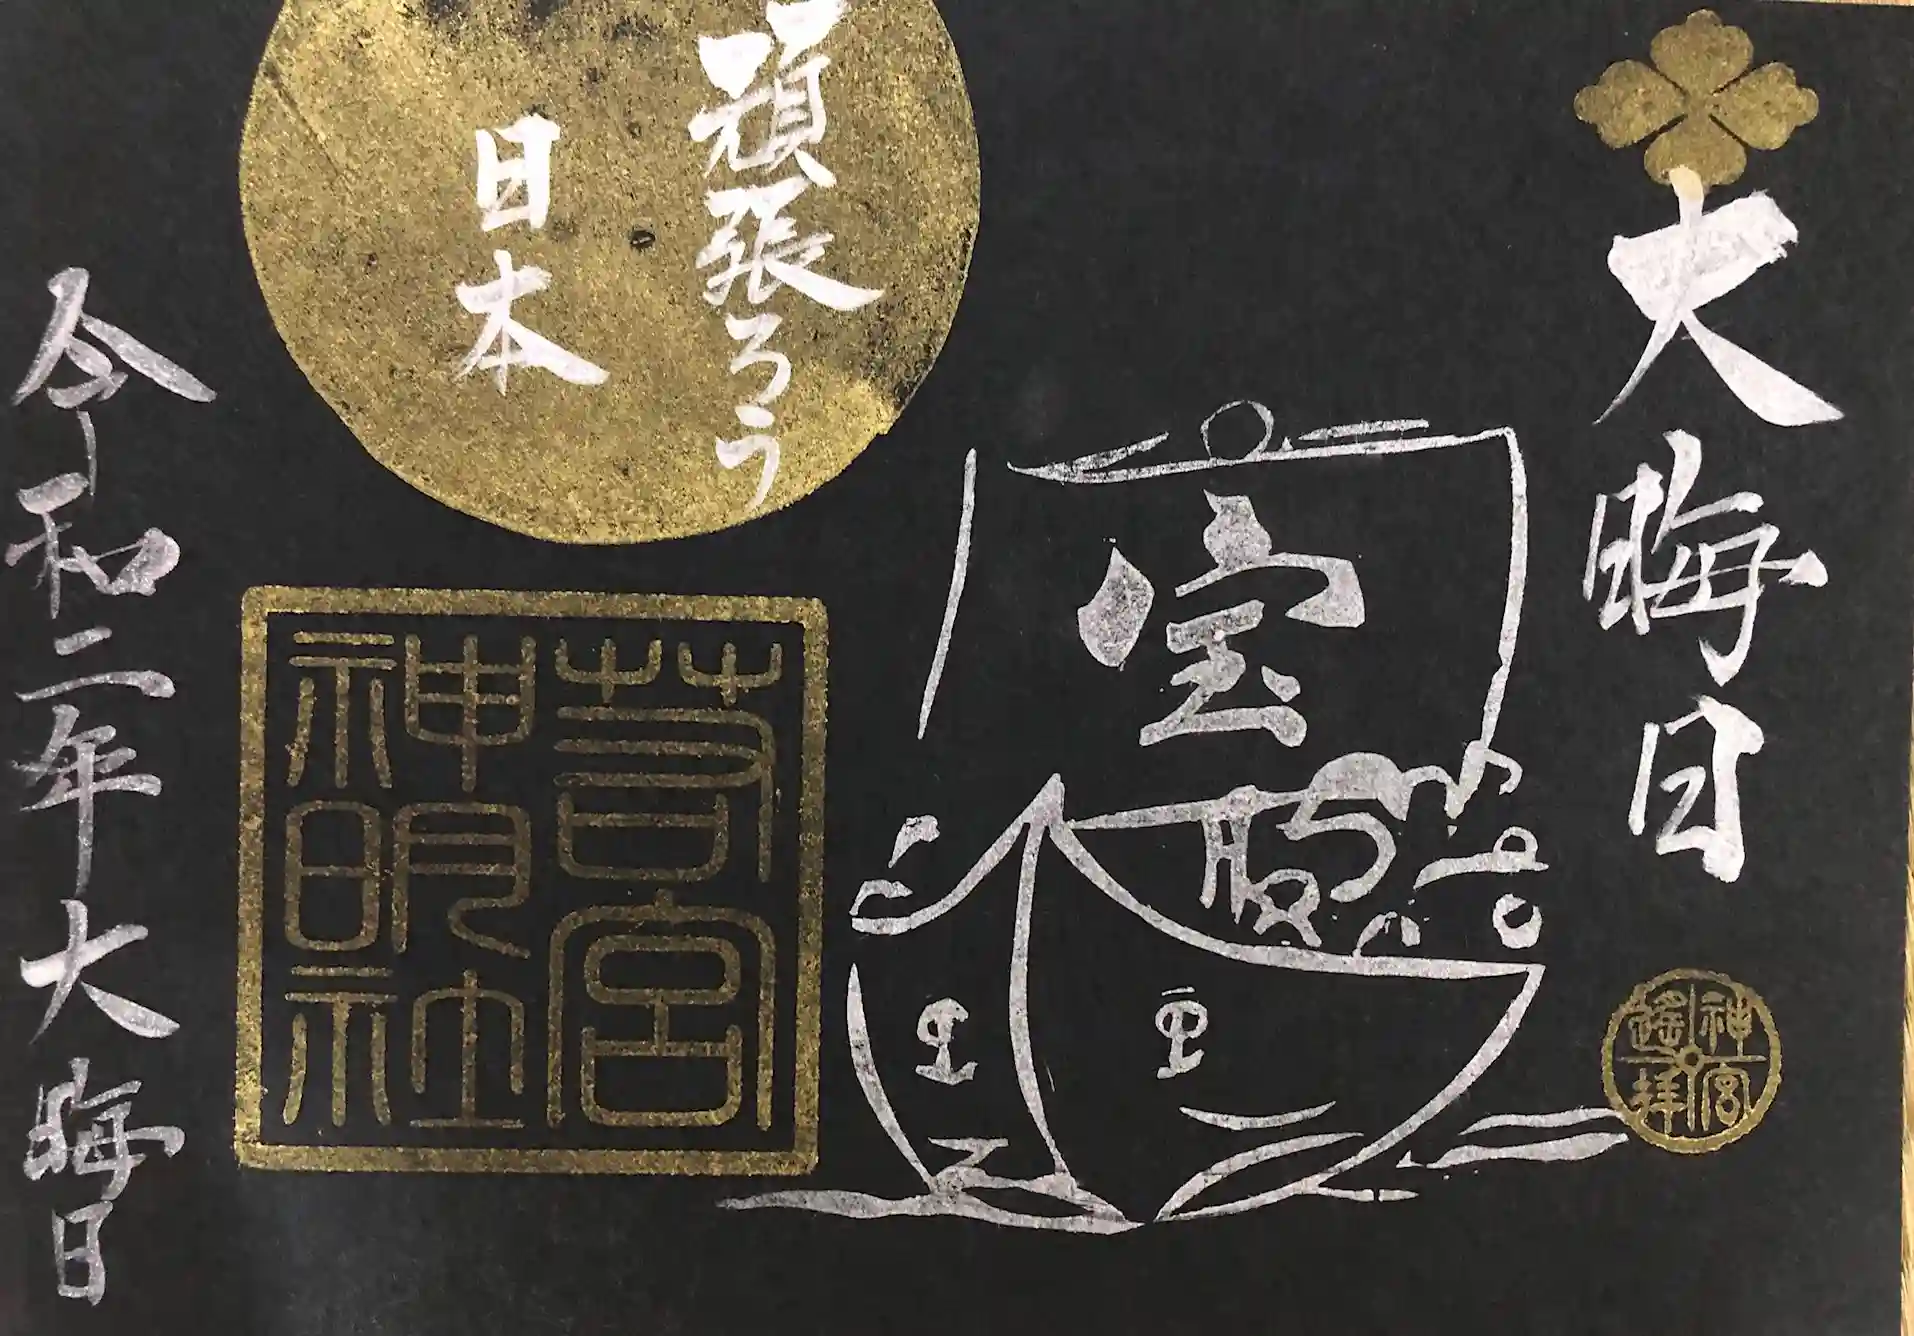 大晦日
神宮
遥拝
宝
頑張ろう
日本
芳宮
神明社
令和二年大晦日